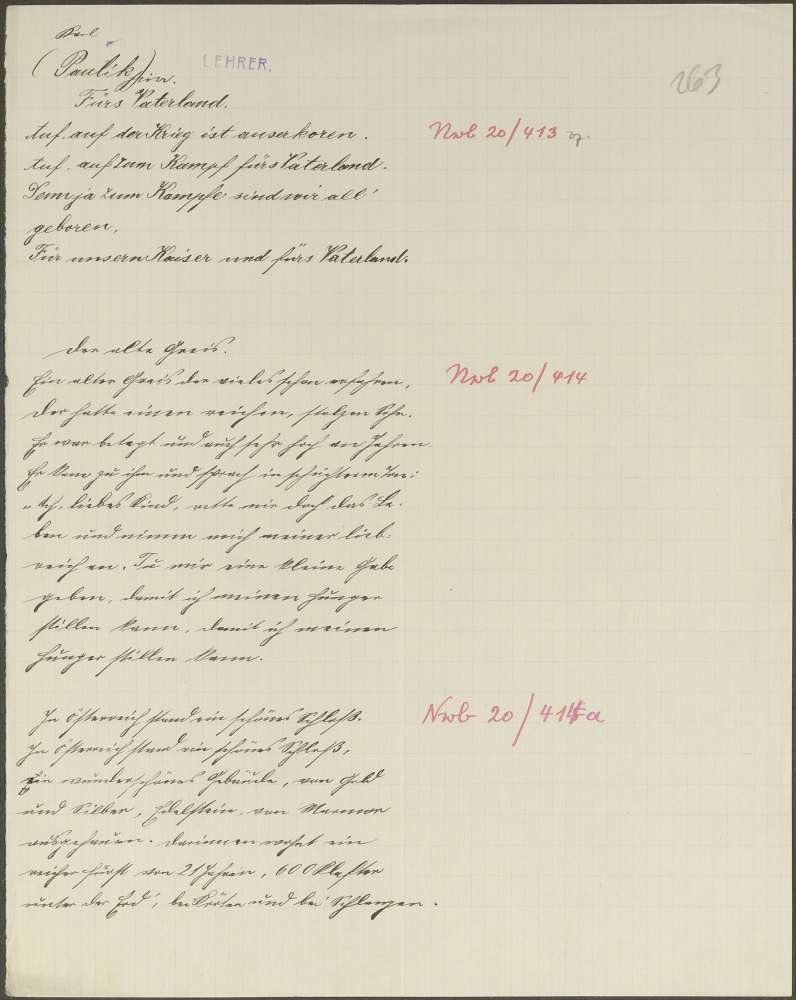 Karl
(Paulik)jun.
LEHRER.
263
Fürs Vaterland.
Auf, auf der Krieg ist auserkoren.
Nwb 20/413
Auf, auf zum Kampf fürs Vaterland.
Denn ja zum Kampfe sind wir all'
geboren,
Für unsern Kaiser und fürs Vaterland.
Der alte Greis.
Ein alter Greis der vieles schon erfahren,
Nwb 20/414
der hatte einen reichen, stolzen Sohn.
Er war betagt und auch sehr hoch an Jahren
Er kam zu ihm und sprach in schüchternem Ton:
"Ach, liebes Kind, rette mir doch das Le-
ben und nimm mich meiner lieb-
reich an. Tu mir eine kleine Gabe
geben, damit ich meinen Hunger
stillen kann, damit ich meinen
Hunger stillen kann.
In Österreich stand ein schönes Schloß.
Nwb 20/414a
In Österreich stand ein schönes Schloß,
Ein wunderschönes Gebäude, von Gold
und Silber, Edelstein, von Marmor
ausgehauen. Darinnen wohnt ein
reicher Fürst von 21 Jahren, 600 Klafter
unter der Erd', bei Kröten und bei Schlangen.